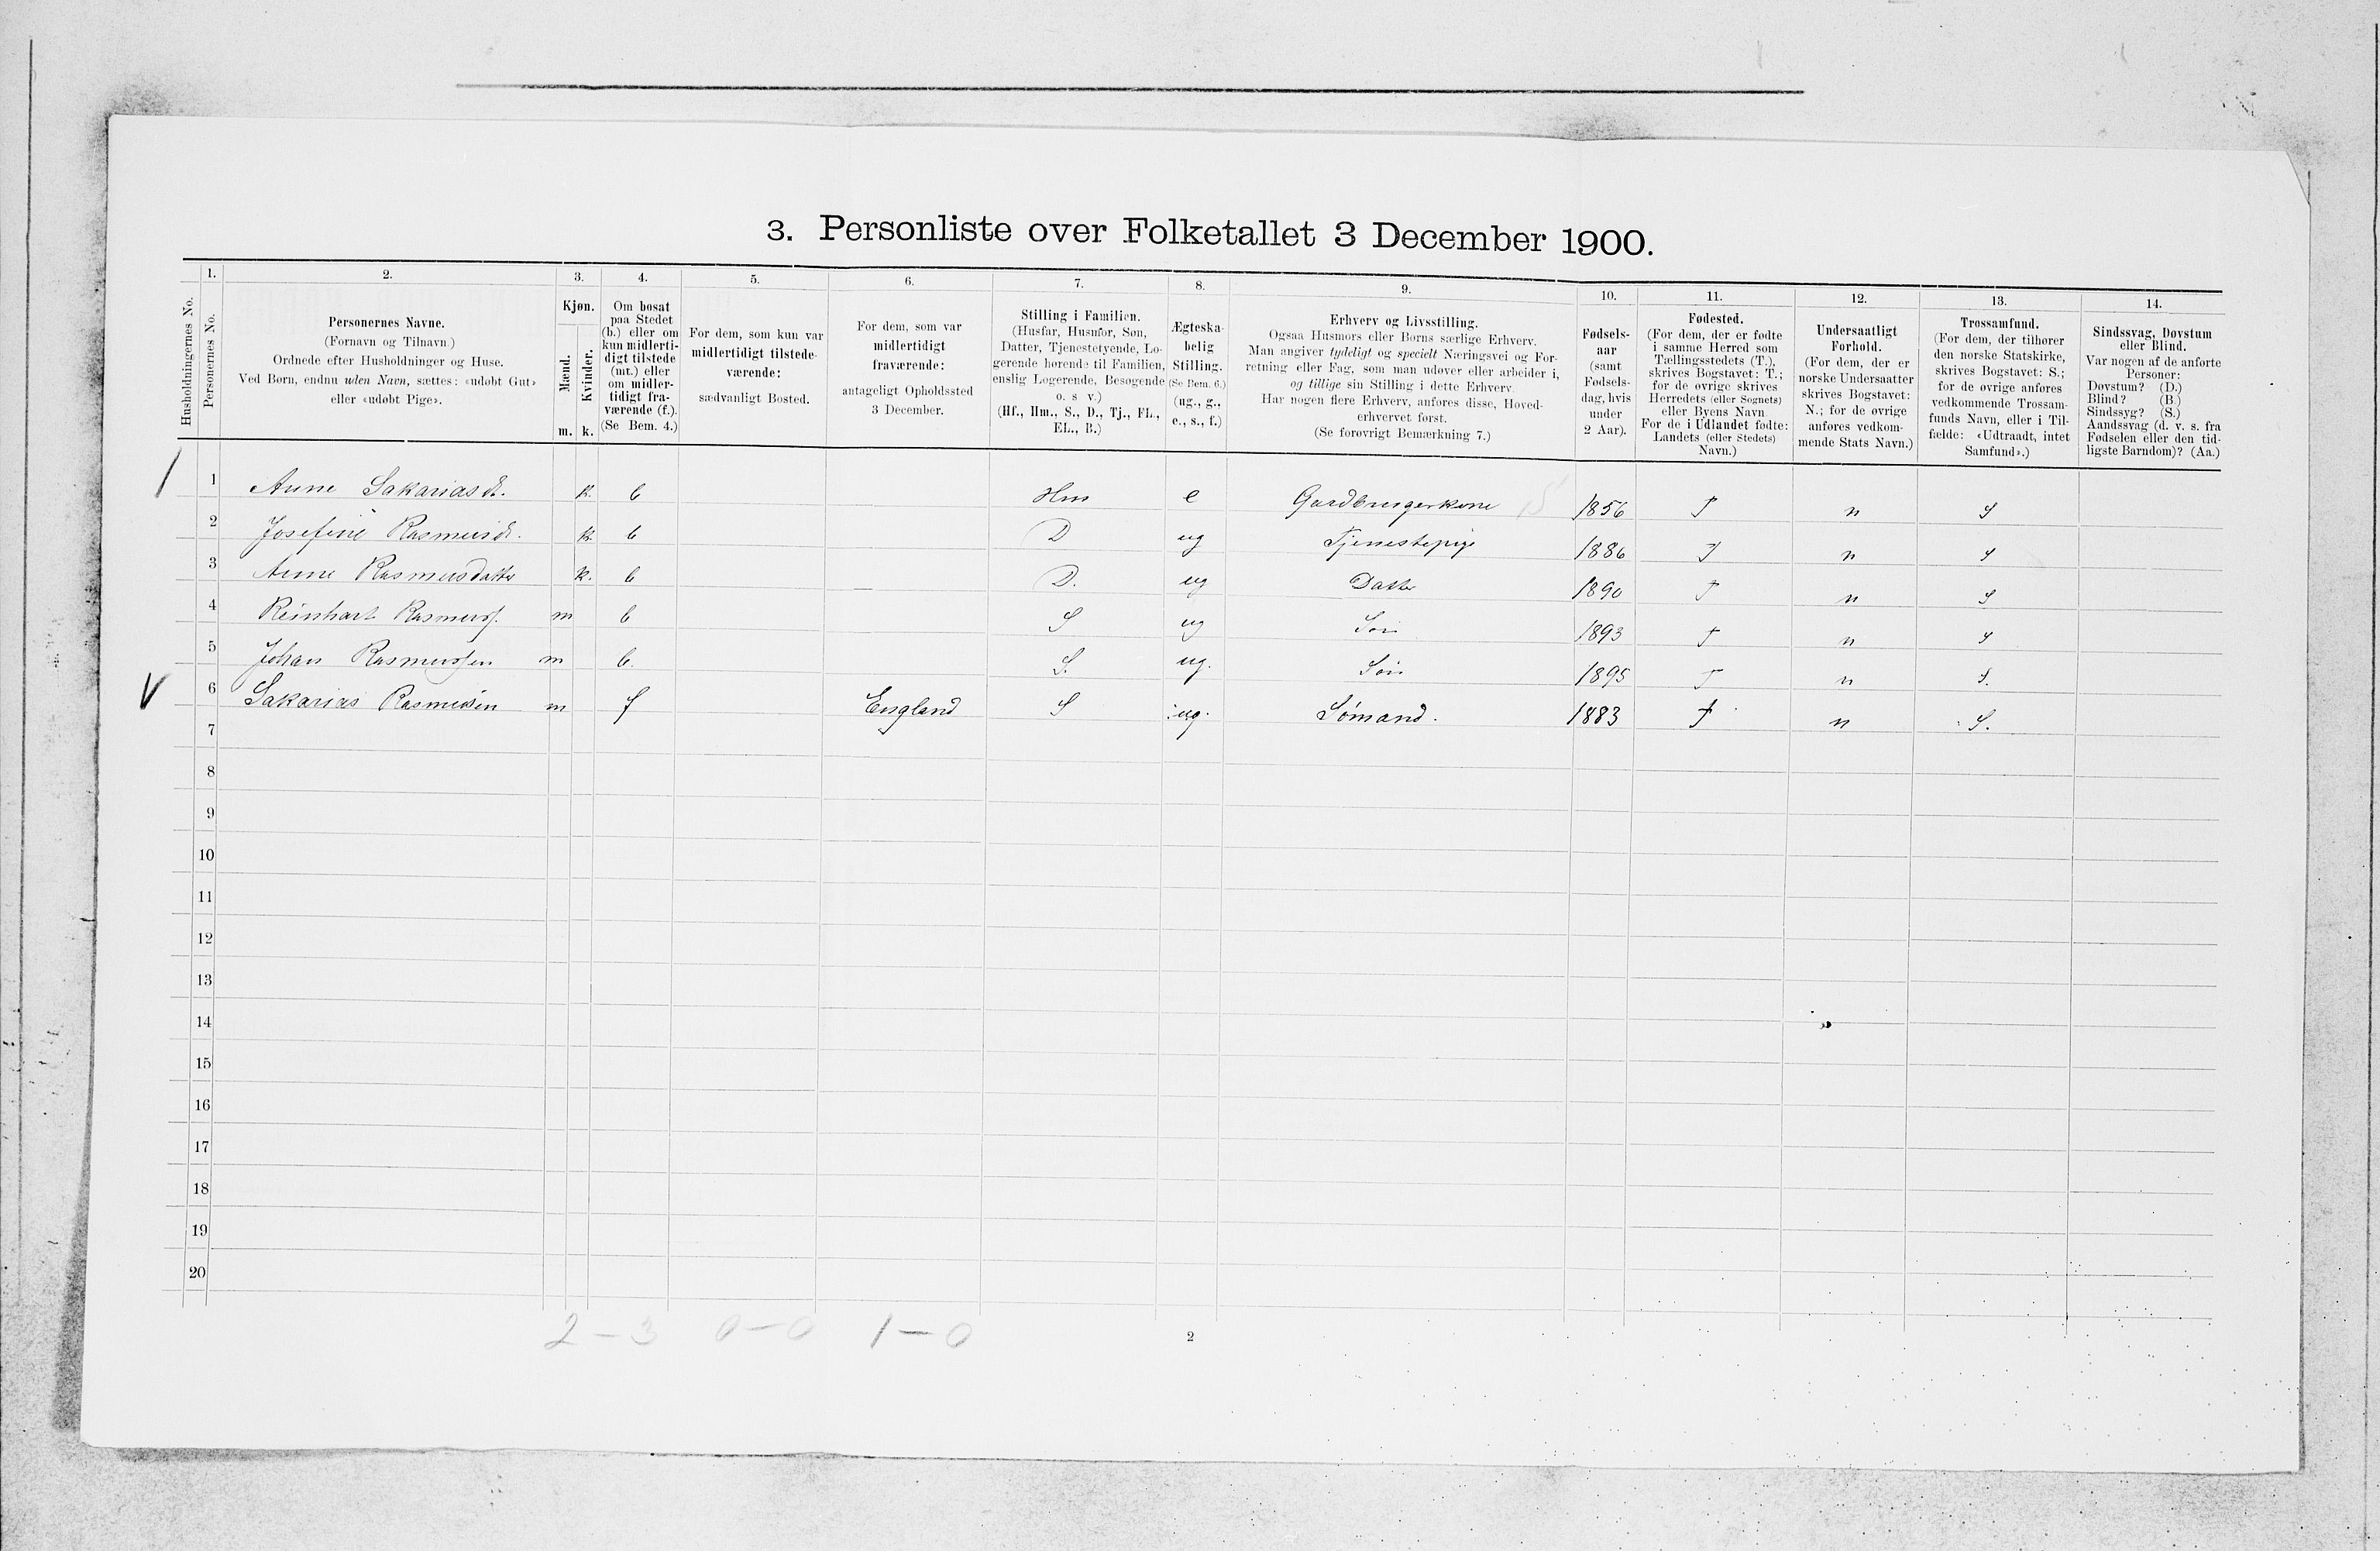 3. Personliste over Folketallet 3 December 1900.
Husholdningernes No.
1.
Personernes No.
2.
Personernes Navne.
(Fornavn og Tilnavn.)
Ordnede efter Husholdninger og Huse.
Ved Børn, endnu uden Navn, sættes: «udøbt Gut»
eller «udøbt Pige».
3.
Kjøn.
Mænd.
Kvinder.
m. k.
4.
Om bosat
paa Stedet
(b.) eller om
kun midlerti-
digt tilstede
(mt.) eller
om midler-
tidigt fra-
værende (f.).
(Se Bem. 4.)
5.
For dem, som kun var
midlertidigt tilstede-
værende:
sædvanligt Bosted.
6.
For dem, som var
midlertidigt
fraværende:
antageligt Opholdssted
3 December.
7.
Stilling i Familien.
(Husfar, Husmor, Søn,
Datter, Tjenestetyende, Lo-
gerende hørende til Familien,
enslig Logerende, Besøgende
o. s v.)
(Hf., Hm., S., D., Tj., FL.,
EL., B.)
8.
Ægteska-
belig
Stilling.
(Se Bem. 6.)
(ug., g.,
e., s., f.)
9.
Erhverv og Livsstilling.
Ogsaa Husmors eller Børns særlige Erhverv.
Man angiver tydeligt og specielt Næringsvei og For-
retning eller Fag, som man udøver eller arbeider i,
og tillige sin Stilling i dette Erhverv.
Har nogen flere Erhverv, anføres disse, Hoved-
erhvervet først.
(Se forøvrigt Bemærkning 7.)
10.
Fødsels-
aar
(samt
Fødsels-
dag, hvis
under
2 Aar).
11.
Fødested.
(For dem, der er fødte
i samme Herred som
Tællingsstedets (T.),
skrives Bogstavet: T.;
for de øvrige skrives
Herredets (eller Sognets)
eller Byens Navn.
For de i Udlandet fødte:
Landets (eller Stedets)
Navn.)
12.
Undersaatligt
Forhold.
(For dem, der er
norske Undersaatter
skrives Bogstavet:
N.; for de øvrige
anføres vedkom-
mende Stats Navn.)
13.
Trossamfund.
(For dem, der tilhører
den norske Statskirke,
skrives Bogstavet: S.;
for de øvrige anføres
vedkommende Trossam-
funds Navn, eller i Til-
fælde: «Udtraadt, intet
Samfund».)
14.
Sindssvag, Døvstum
eller Blind.
Var nogen af de anførte
Personer:
Døvstum? (D.)
Blind? (B.)
Sindssyg? (S.)
Aandssvag (d. v. s. fra
Fødselen eller den tid-
ligste Barndom)? (Aa.)
1 Anne Sakariasd. k. b Hm e Gaardbrugerkone 15 1856 T n S
2 Josefine Rasmusd. k. b D ug Tjenestepige 1886 T n S
3 Anne Rasmusdatter k. b D. ug Datter 1890 T n S
4 Reinhart Rasmuss. m b S ug Søn 1893 T n S
5 Johan Rasmussen m b. S. ug. Søn 1895 T n S.
V 6 Sakarias Rasmusen m f England S ug. Sømand. 1883 T n S.
7
8
9
10
11
12
13
14
15
16
17
18
19
20
2 – 3 0 – 0 1 – 0
2